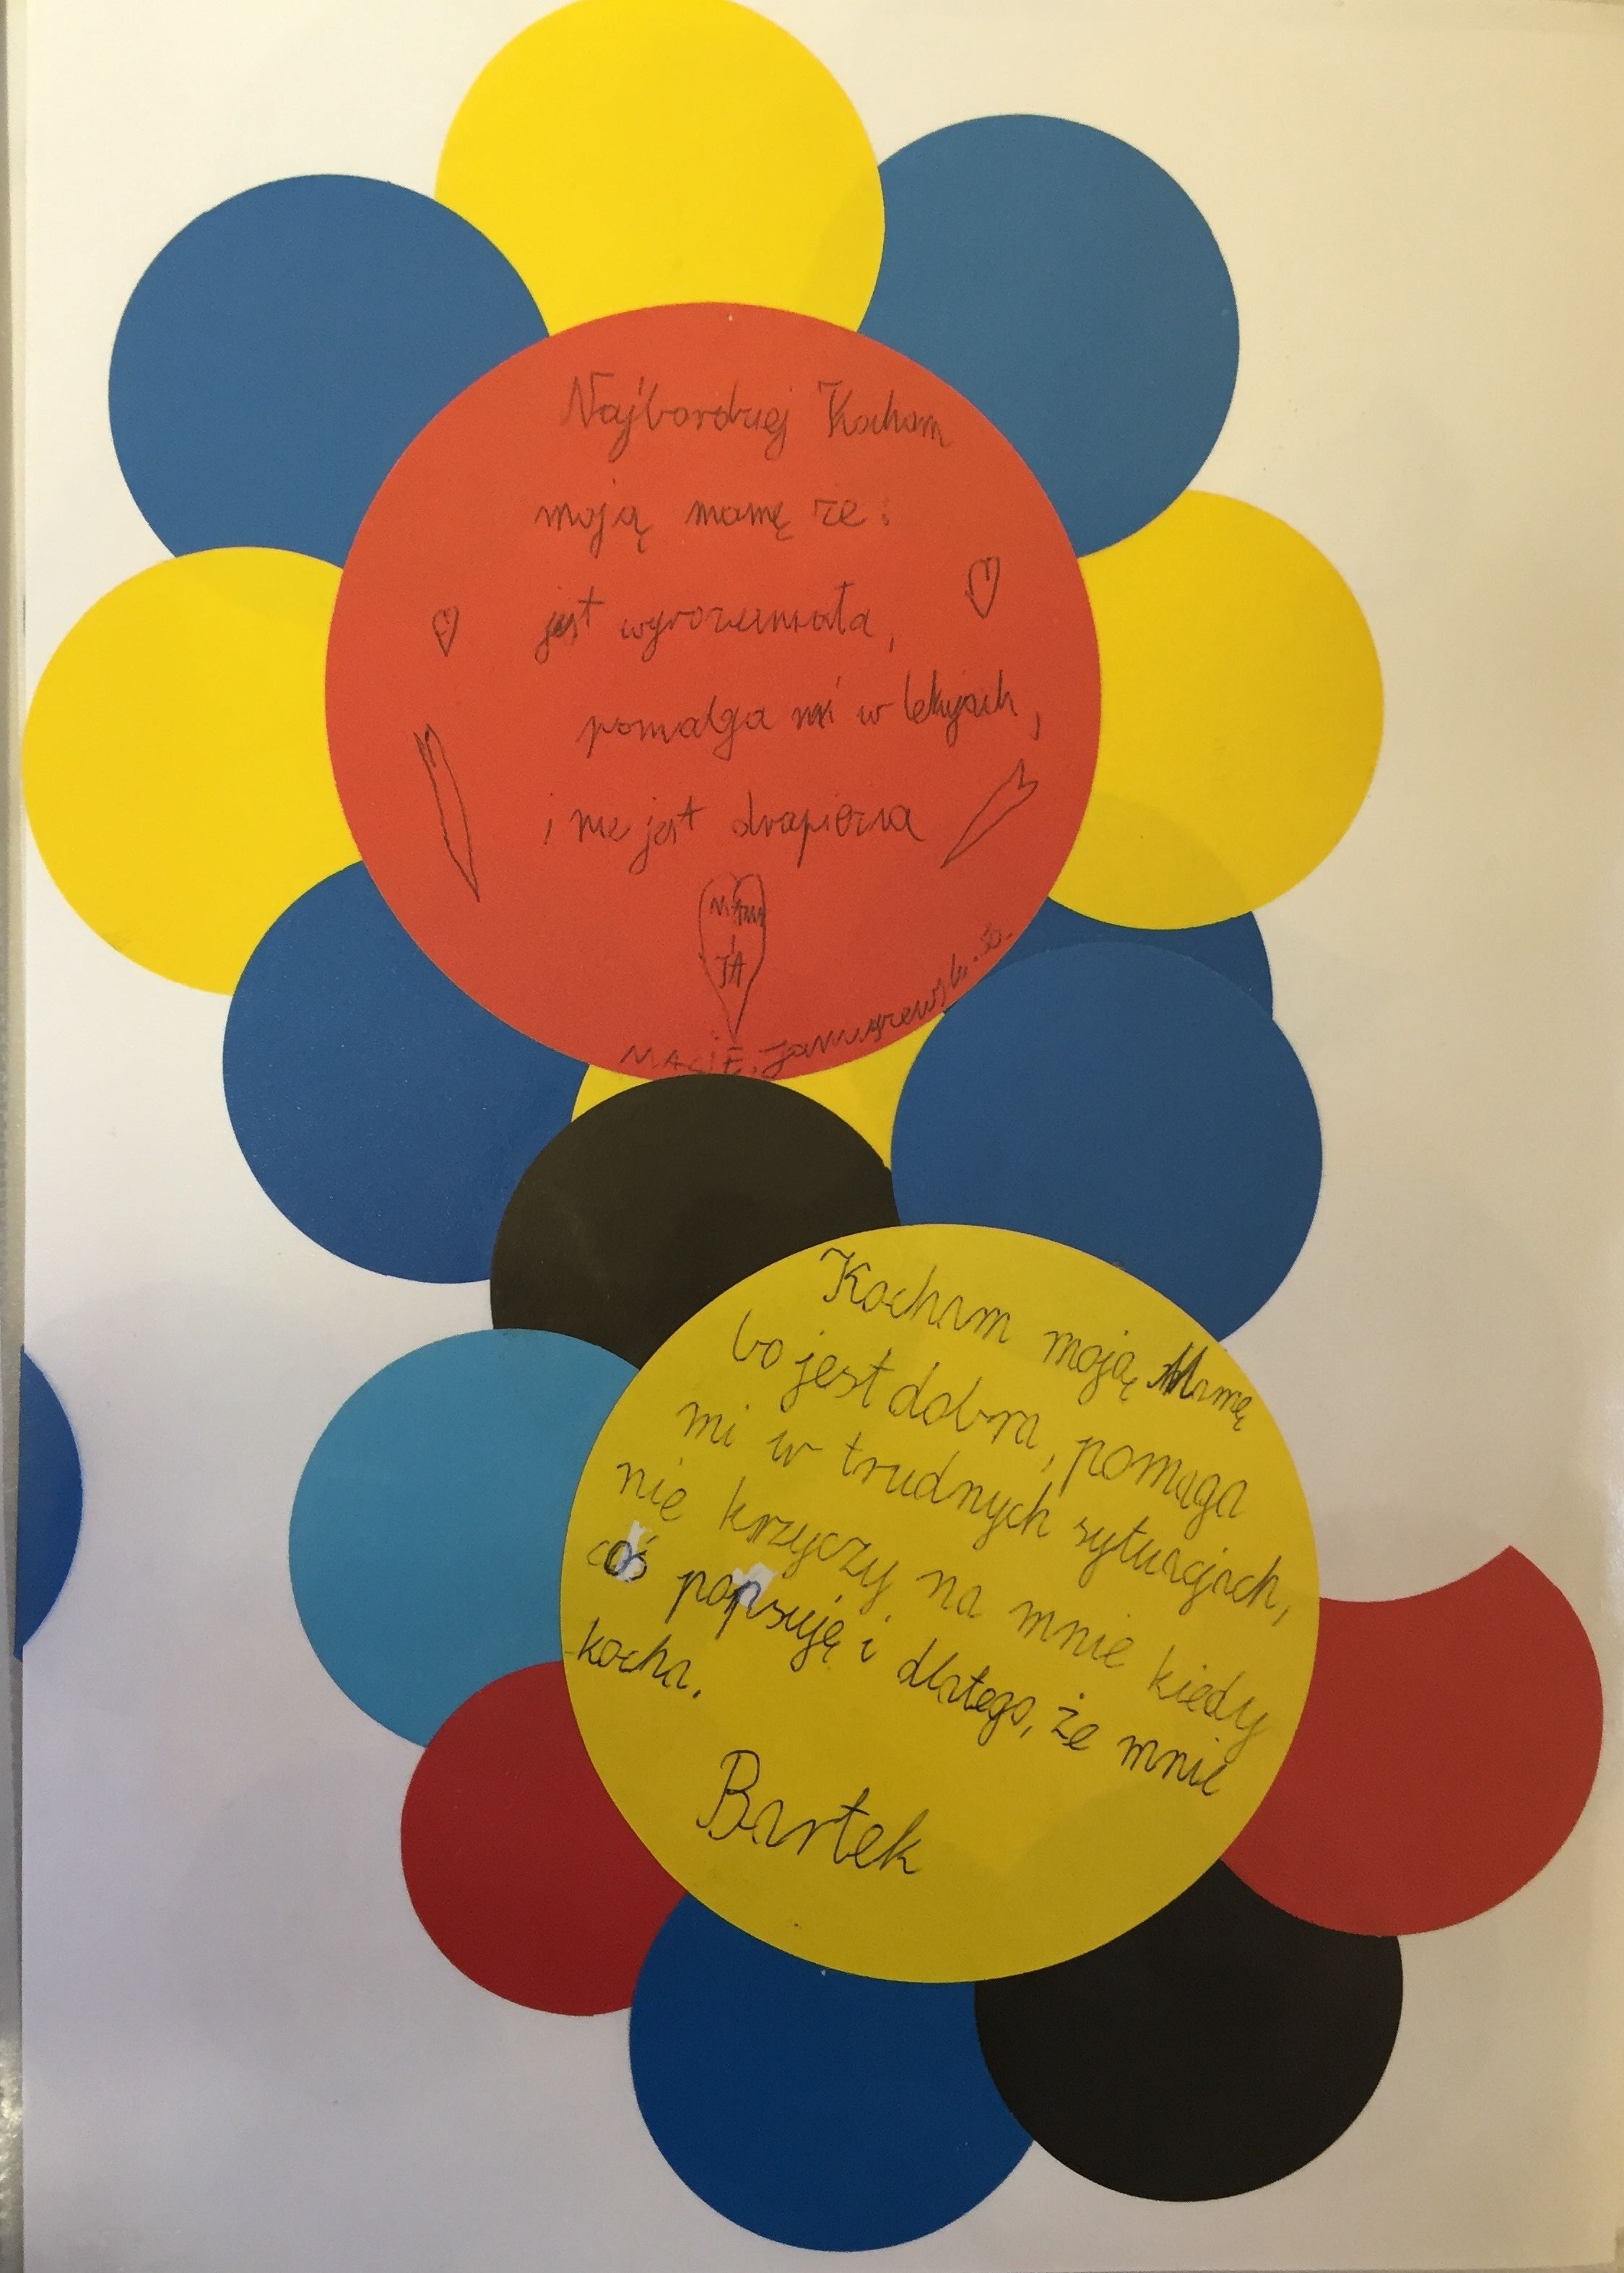 Najbardziej Kocham
moją mamę że:
jest wyrozumiała,
pomaga mi w lekcjach,
i nie jest drapieżna
MAMA
I
JA
Kocham moją Mamę
bo jest dobra, pomaga
mi w trudnych sytuacjach,
nie krzyczy na mnie kiedy
coś popsuję i dlatego, że mnie
kocha.
Bartek